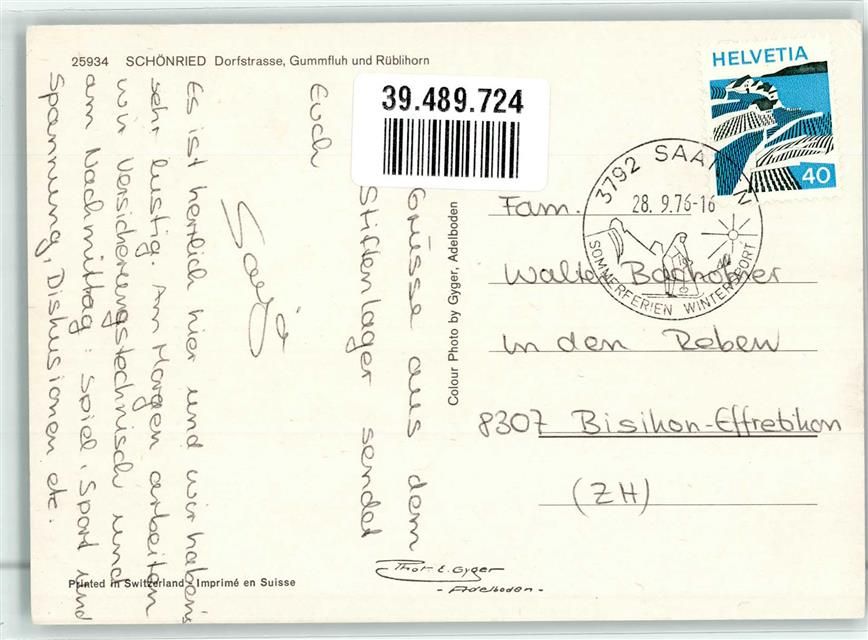 25934 SCHÖNRIED Dorfstrasse, Gummfluh und Rüblihorn
39.489.724
HELVETIA
40
3792 SAANEN
28.9.76-16
SOMMERFERIEN WINTERSPORT
Grüsse aus dem
Stiftenlager sendet
Euch
Sonja
Es ist herrlich hier und wir haben's
sehr lustig. Am Morgen arbeiten
wir versicherungstechnisch und
am Nachmittag: Spiel, Sport und
Spannung, Diskusionen etc.
Colour Photo by Gyger, Adelboden
Fam.
Walter Bachofner
In den Reben
8307 Bisikon-Effretikon
(ZH)
Phot. E. Gyger
- Adelboden -
Printed in Switzerland - Imprimé en Suisse